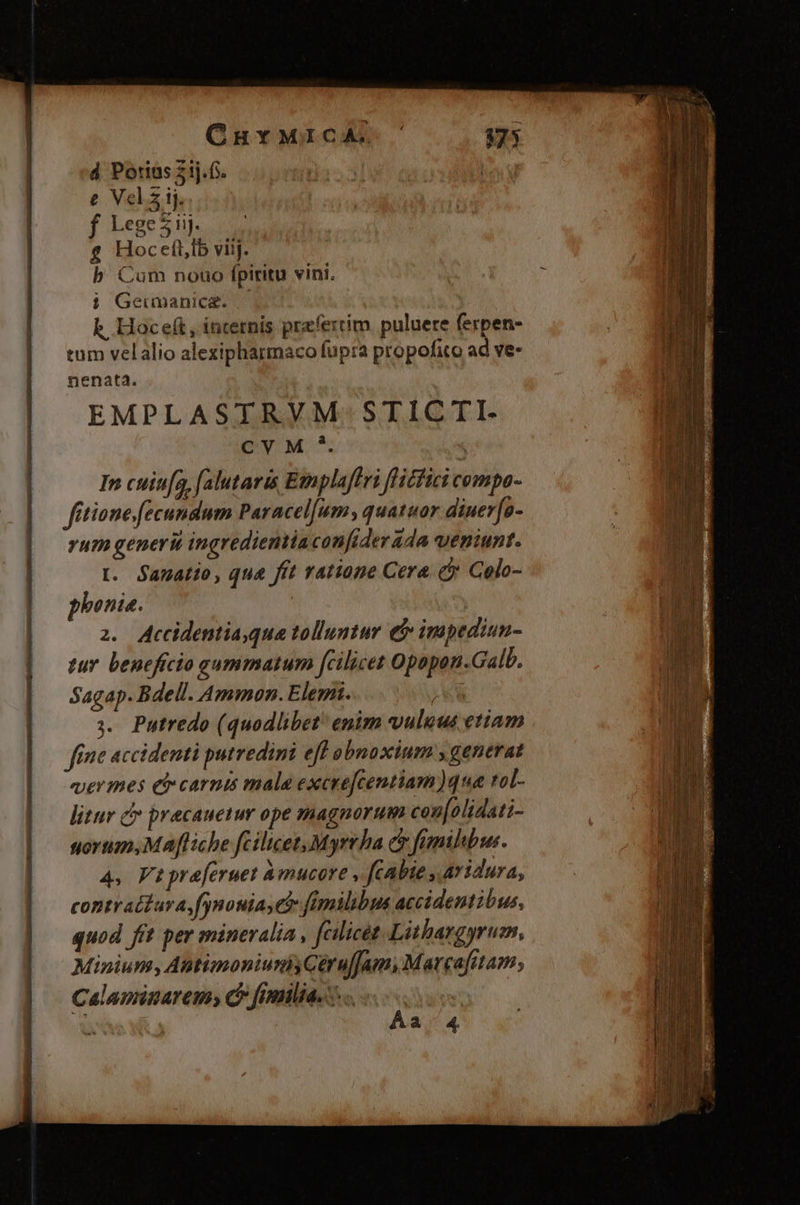 CHYMICA. 375
d Potius ʒij.ß.
e Vel ʒ ij.
f Lege ʒ iij.
g Hoc eſt, ℔ viij.
h Cum nouo ſpiritu vini.
i Germanicæ.
k Hoc eſt, internis præſertim puluere ſerpen-
tum vel alio alexipharmaco ſupra propoſito ad ve-
nenata.
EMPLASTRVM STICTI-
CVM ª.
In cuiuſq; ſalutaris Emplaſtri ſtictici compo-
ſitione, ſecundum Paracelſum, quatuor diuerſo-
rum generū ingredientia conſiderāda veniunt.
1. Sanatio, quæ fit ratione Ceræ & Colo-
phoniæ.
2. Accidentia, quæ tolluntur & impediun-
tur beneficio gummatum ſcilicet Opopon. Galb.
Sagap. Bdell. Ammon. Elemi.
3. Putredo (quodlibet enim vulnus etiam
ſine accidenti putredini eſt obnoxium, generat
vermes & carnis malæ excreſcentiam) quæ tol-
litur & præcauetur ope magnorum conſolidati-
uorum, Maſtiche ſcilicet, Myrrha & ſimilibus.
4. Vt præſeruet à mucore, ſcabie, ariditura,
contractura, ſynouia, & ſimilibus accidentibus,
quod fit per mineralia, ſcilicèt Lithargyrum,
Minium, Antimonium, Ceruſſam, Marcaſitam,
Calaminarem, & ſimilia.
Aa 4